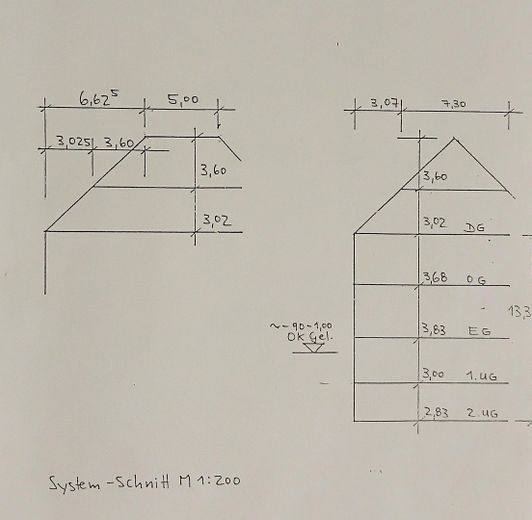 6,62⁵ 5,00
3,025 3,60
3,60
3,02
3,07 7,30
3,60
3,02 DG
3,68 OG
13,3
~-90-1,00
OK Gel.
3,83 EG
3,00 1.UG
2,83 2.UG
System-Schnitt M 1:200